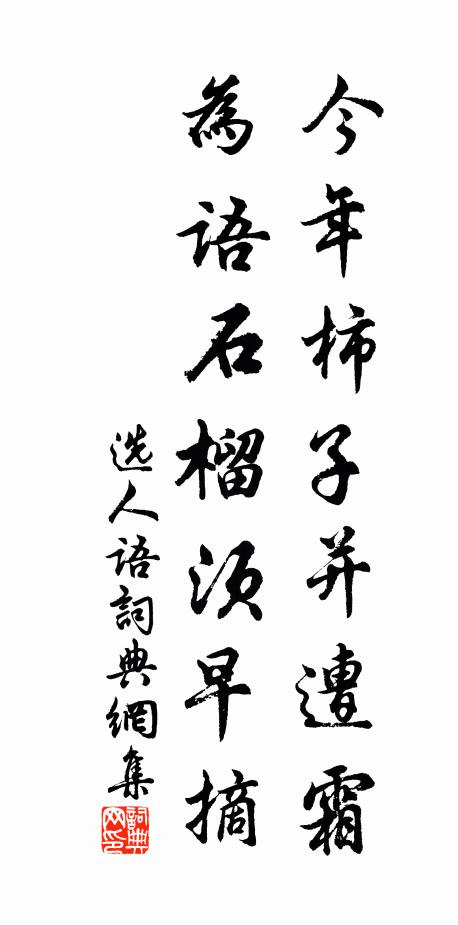 今年柿子并遭霜
為語石榴須早摘
选人语詞典網集
詞典网印